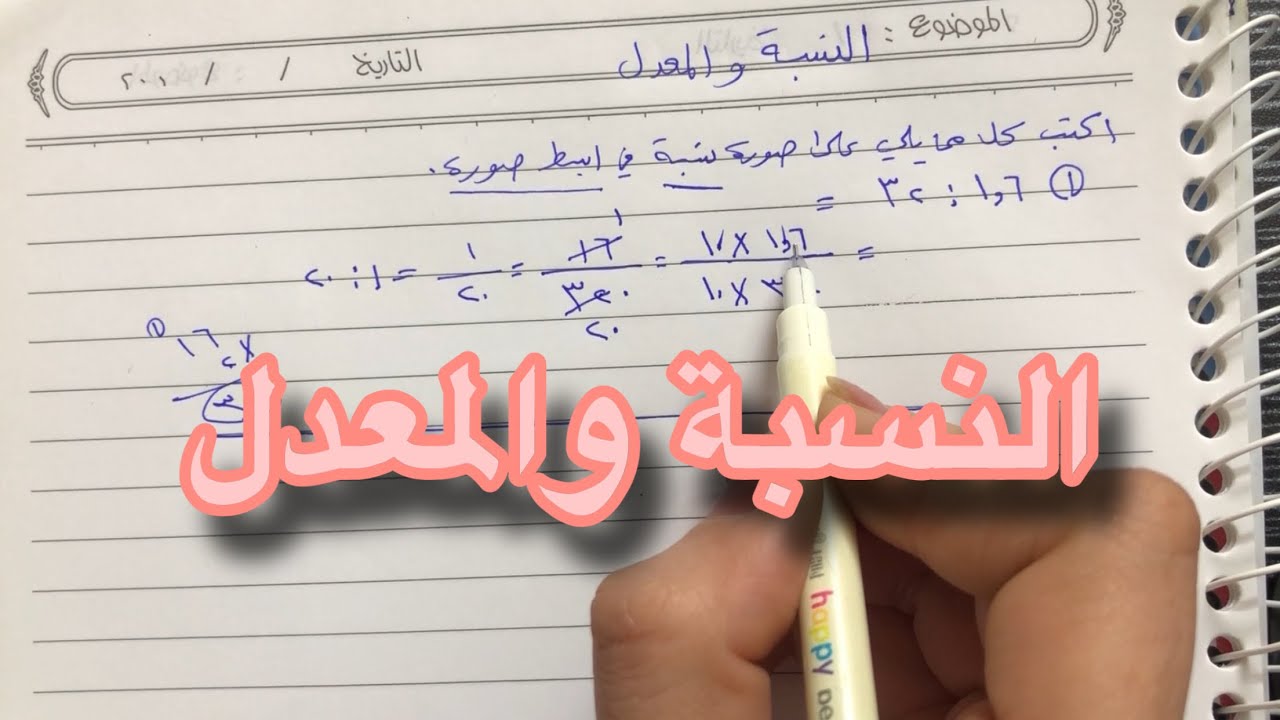 الموضوع : النسبة والمعدل
التاريخ / / ٢٠٠
اكتب كلا مما يلي على صورة نسبة في ابسط صورة.
① ١,٦ : ٣٢ =
= ١,٦ × ١٠ / ٣٢ × ١٠ = ١٦ / ٣٢٠ = ١ / ٢٠ = ١ : ٢٠
١
٢٠
١٦
× ٢
النسبة والمعدل
happy